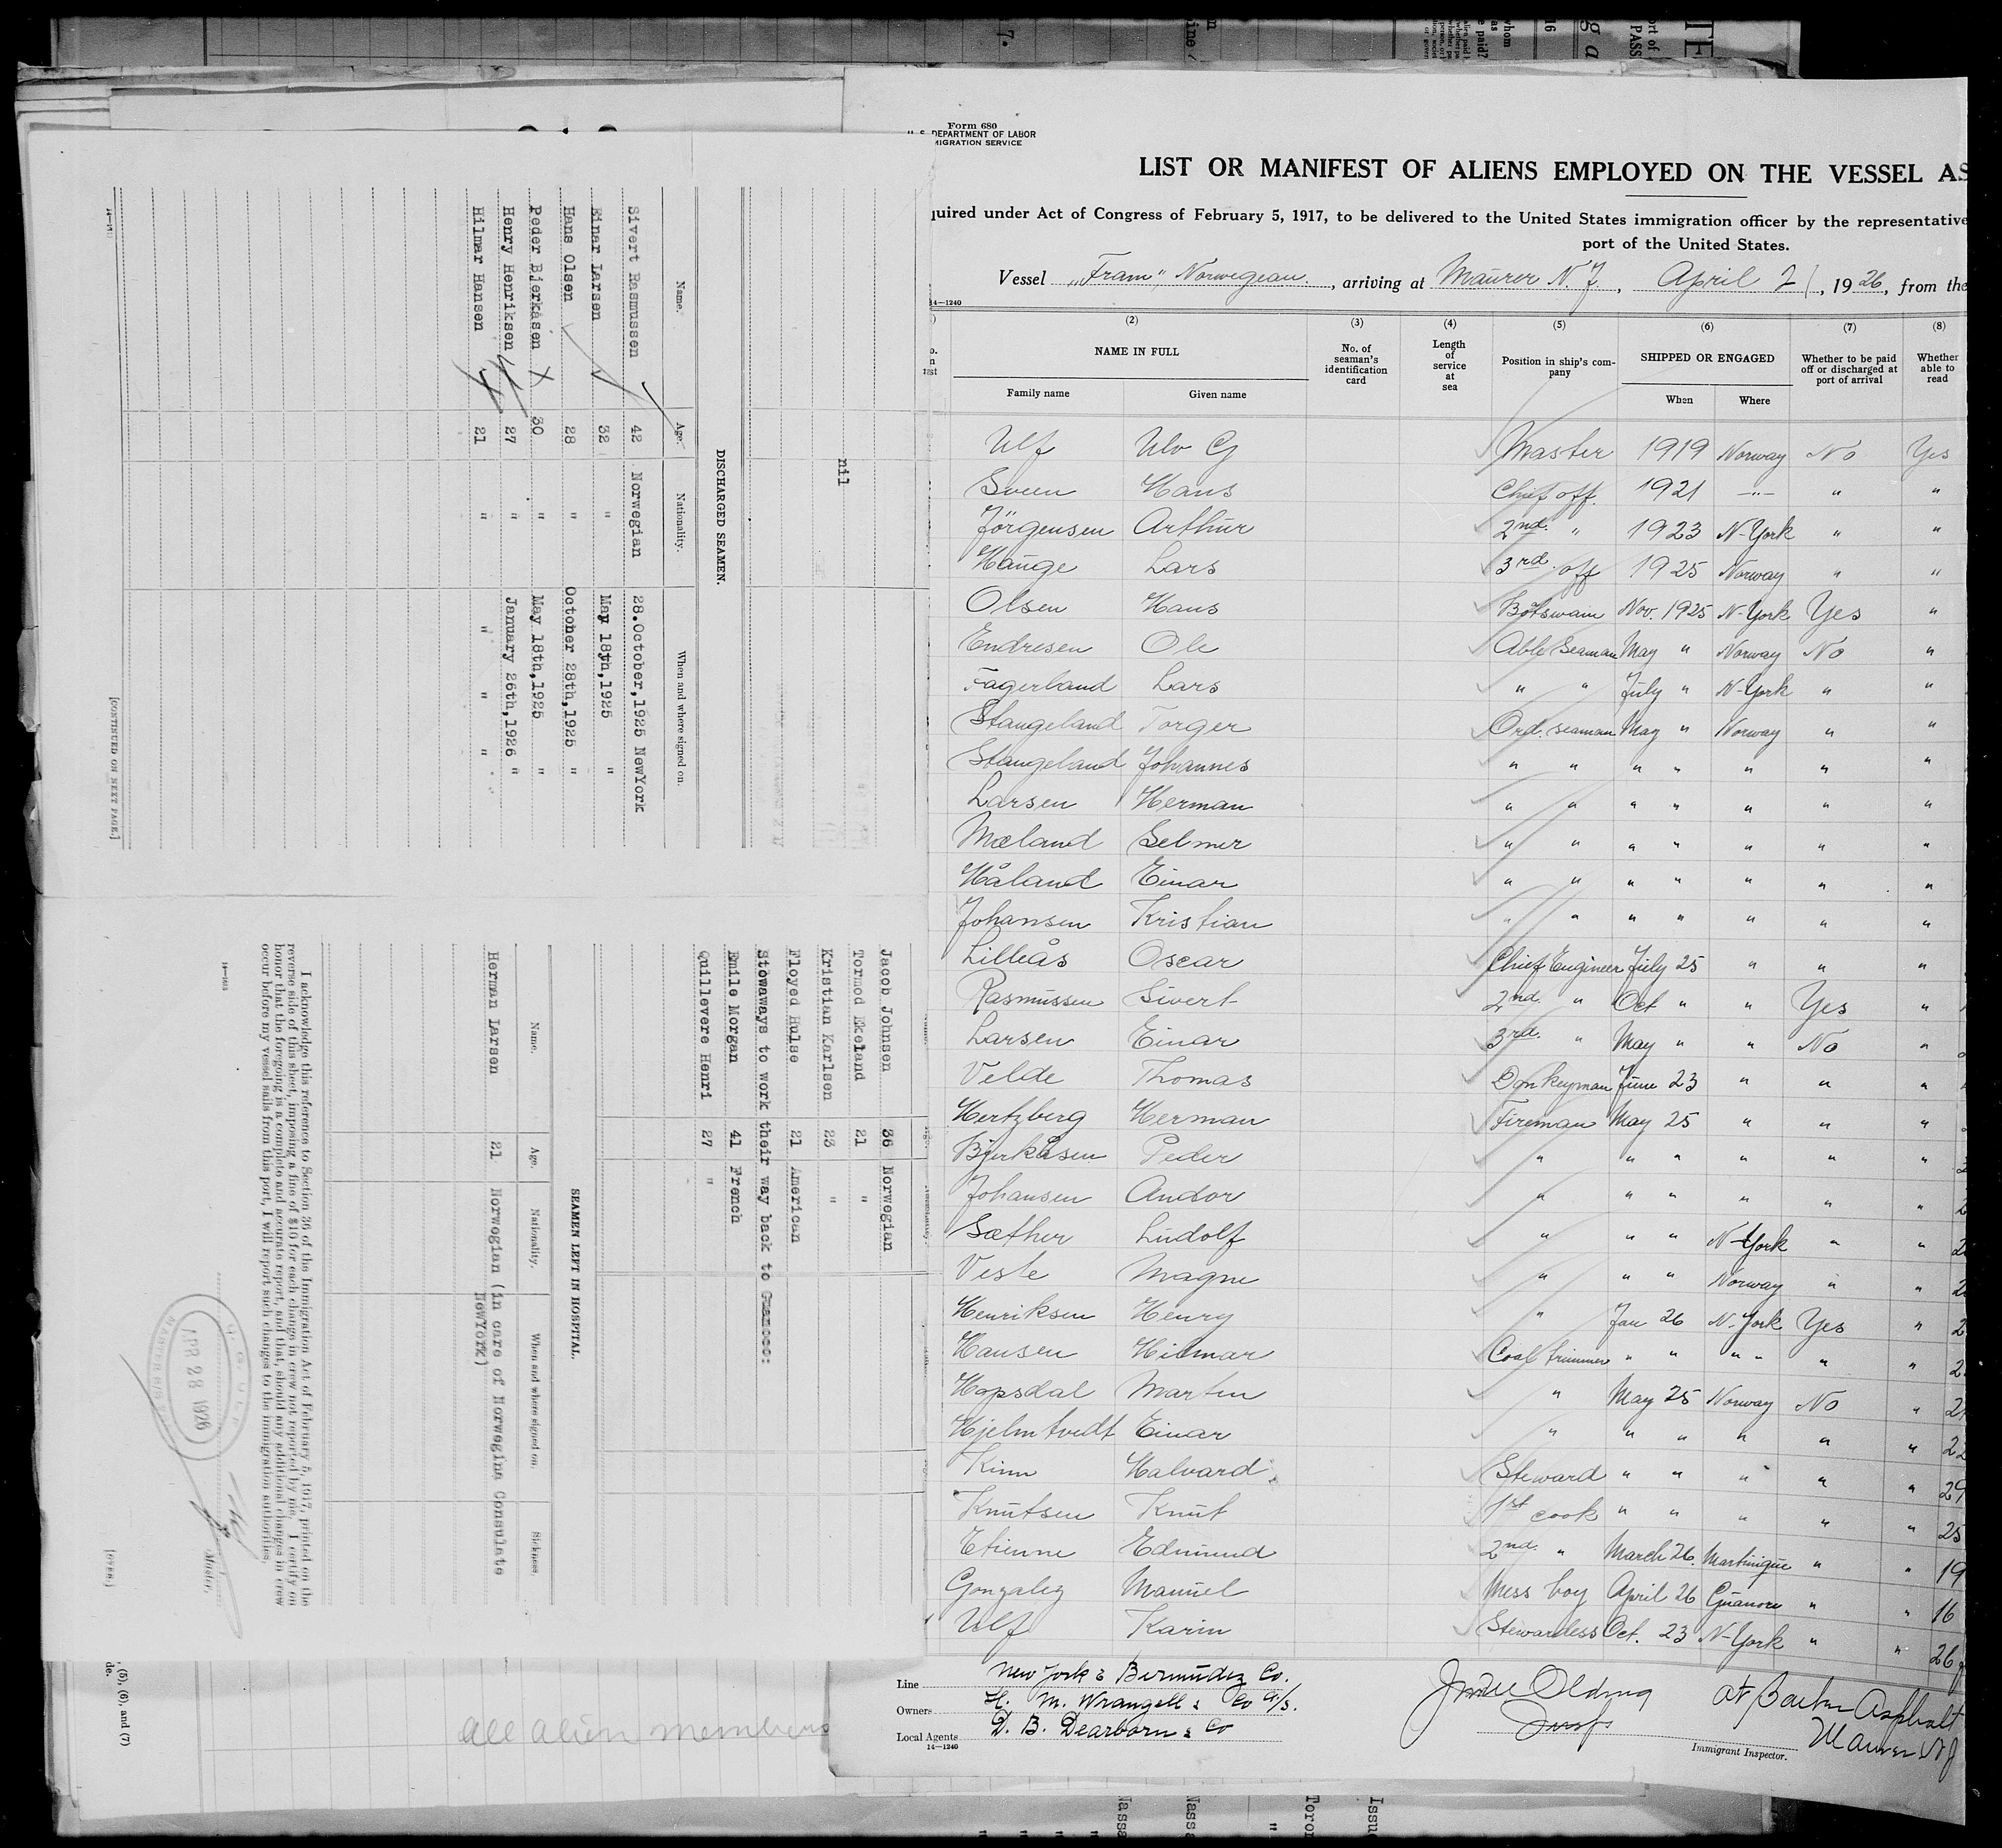 Form 680
U. S. DEPARTMENT OF LABOR
MIGRATION SERVICE
LIST OR MANIFEST OF ALIENS EMPLOYED ON THE VESSEL AS
quired under Act of Congress of February 5, 1917, to be delivered to the United States immigration officer by the representative
port of the United States.
Vessel „Fram„ Norwegean. , arriving at Maurer N. J. , April 21 , 1926, from the
14—1240
(2) (3) (4) (5) (6) (7) (8)
NAME IN FULL No. of seaman's identification card Length of service at sea Position in ship's company SHIPPED OR ENGAGED Whether to be paid off or discharged at port of arrival Whether able to read
Family name Given name When Where
Ulf Ulv G Master 1919 Norway No Yes
Sveen Hans Chief off. 1921 —"— " "
Jörgensen Arthur 2nd. " 1923 N-York " "
Hauge Lars 3rd. off 1925 Norway " "
Olsen Hans Bötswain Nov. 1925 N-York Yes "
Endresen Ole Able Seaman May " Norway No "
Fagerland Lars " " July " N-York " "
Stangeland Torger Ord. seaman May " Norway " "
Stangeland Johannes " " " " " " "
Larsen Herman " " " " " " "
Mæland Selmer " " " " " " "
Håland Einar " " " " " " "
Johansen Kristian " " " " " " "
Lilleås Oscar Chief Engineer July 25 " " "
Rasmussen Sivert 2nd. " Oct " " Yes "
Larsen Einar 3rd. " May " " No "
Velde Thomas Donkeyman June 23 " " "
Hertzberg Herman Fireman May 25 " " "
Bjerkåsen Peder " " " " " "
Johansen Andor " " " " " "
Sæther Ludolf " " " N-York " "
Veste Magne " " " Norway " "
Henriksen Henry " Jan 26 N-York Yes "
Hansen Hilmar Coal trimmer " " " " " "
Hopsdal Martin " May 25 Norway No "
Hjelmtvedt Einar " " " " " " 22
Kinn Halvard Steward " " " " " 29
Knutsen Knut 1st cook " " " " " 25
Etienne Edmund 2nd. " March 26. Martinique " " 19
Gonzalez Manuel Mess boy April 26 Guanoco " " 16
Ulf Karin Stewardess Oct. 23 N-York " " 26
Line New York & Bermudez Co.
Owners H. M. Wrangell & Co A/S.
Local Agents D. B. Dearborn & Co
14—1240
Immigrant Inspector.
at Barber Asphalt
Maurer NJ
nil
DISCHARGED SEAMEN.
Name. Age. Nationality. When and where signed on.
Sivert Rasmussen 42 Norwegian 28.October,1925 NewYork
Einar Larsen 32 " May 18th,1925 "
Hans Olsen 28 " October 28th,1925 "
Peder Bjerkåsen X 30 " May 18th,1925 "
Henry Henriksen 27 " January 26th,1926 "
Hilmar Hansen 21 " " " "
[CONTINUED ON NEXT PAGE.]
Jacob Johnsen 36 Norwegian
Tormod Ekeland 21 "
Kristian Karlsen 23 "
Floyed Hulse 21 American
Stowaways to work their way back to Guanoco:
Emile Morgan 41 French
Quillevere Henri 27 "
SEAMEN LEFT IN HOSPITAL.
Name. Age. Nationality. When and where signed on. Sickness.
Herman Larsen 21 Norwegian (in care of Norwegina Consulate
NewYork)
I acknowledge this reference to Section 36 of the Immigration Act of February 5, 1917, printed on the
reverse side of this sheet, imposing a fine of $10 for each change in crew not reported by me. I certify on
honor that the foregoing is a complete and accurate report, and that, should any additional changes in crew
occur before my vessel sails from this port, I will report such changes to the immigration authorities
APR 28 1926
Master.
[OVER.]
, (5), (6), and (7)
de.
all alien members